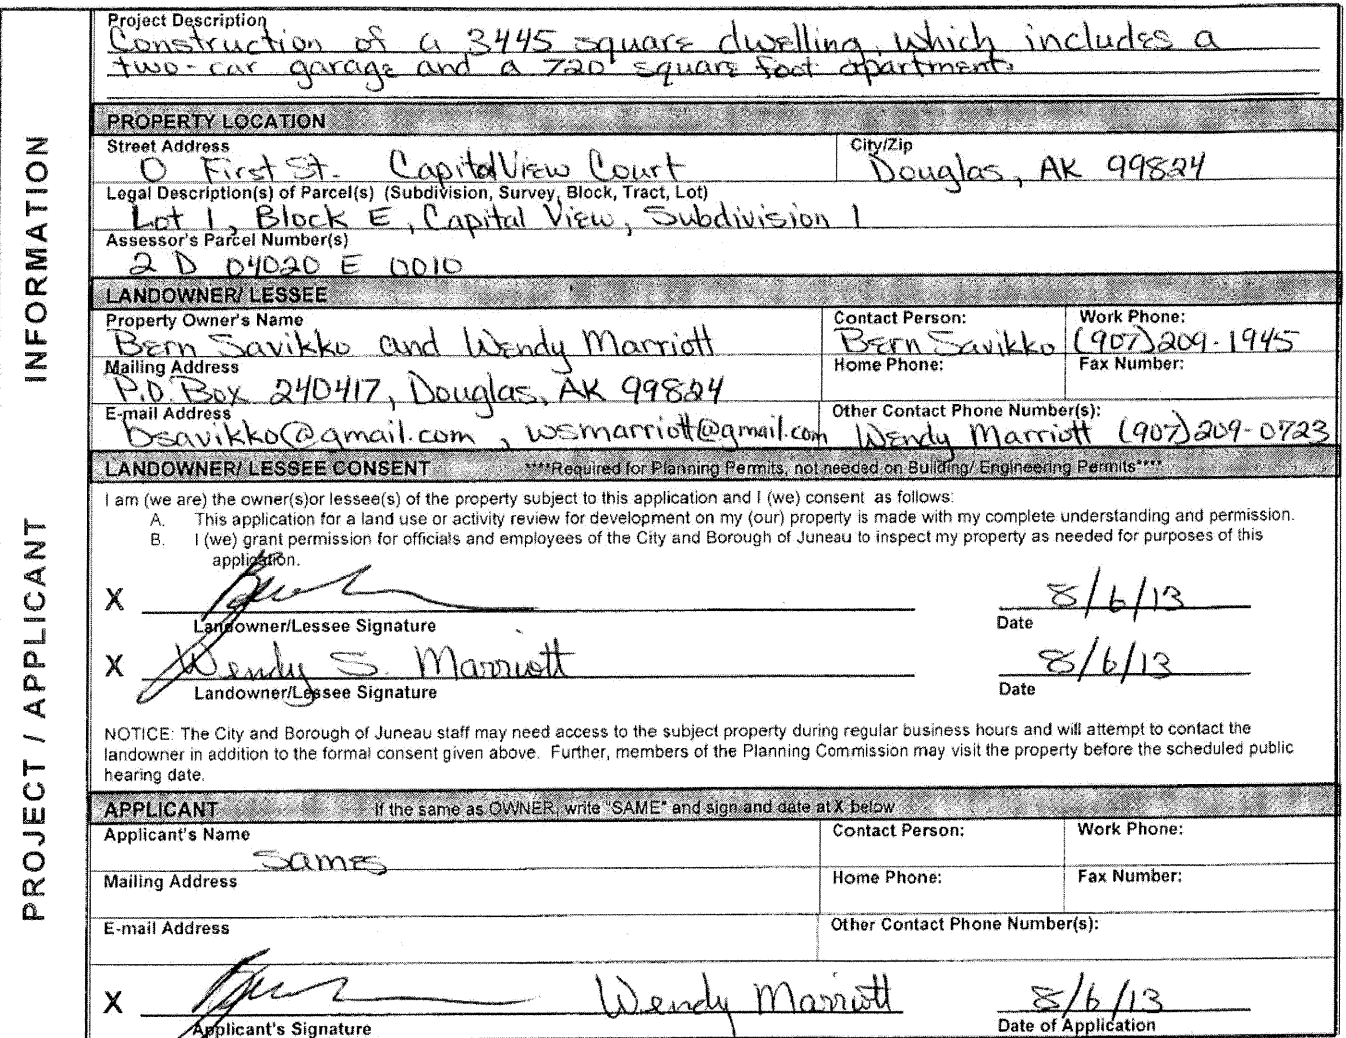 Project Description
Construction of a 3445 square dwelling which includes a
two-car garage and a 720 square foot apartment.
PROPERTY LOCATION
Street Address City/Zip
0 First St. Capital View Court Douglas, AK 99824
Legal Description(s) of Parcel(s) (Subdivision, Survey, Block, Tract, Lot)
Lot 1, Block E, Capital View, Subdivision 1
Assessor's Parcel Number(s)
2 D 04020 E 0010
LANDOWNER/ LESSEE
Property Owner's Name Contact Person: Work Phone:
Bern Savikko and Wendy Marriott Bern Savikko (907)209-1945
Mailing Address Home Phone: Fax Number:
P.O. Box 240417, Douglas, AK 99824
E-mail Address Other Contact Phone Number(s):
bsavikko@gmail.com , wsmarriott@gmail.com Wendy Marriott (907)209-0723
LANDOWNER/ LESSEE CONSENT ****Required for Planning Permits, not needed on Building/ Engineering Permits****
I am (we are) the owner(s)or lessee(s) of the property subject to this application and I (we) consent as follows:
A. This application for a land use or activity review for development on my (our) property is made with my complete understanding and permission.
B. I (we) grant permission for officials and employees of the City and Borough of Juneau to inspect my property as needed for purposes of this
application.
X 8/6/13
Landowner/Lessee Signature Date
X Wendy S. Marriott 8/6/13
Landowner/Lessee Signature Date
NOTICE: The City and Borough of Juneau staff may need access to the subject property during regular business hours and will attempt to contact the
landowner in addition to the formal consent given above. Further, members of the Planning Commission may visit the property before the scheduled public
hearing date.
APPLICANT If the same as OWNER, write "SAME" and sign and date at X below
Applicant's Name Contact Person: Work Phone:
Same
Mailing Address Home Phone: Fax Number:
E-mail Address Other Contact Phone Number(s):
X Wendy Marriott 8/6/13
Applicant's Signature Date of Application
PROJECT / APPLICANT INFORMATION